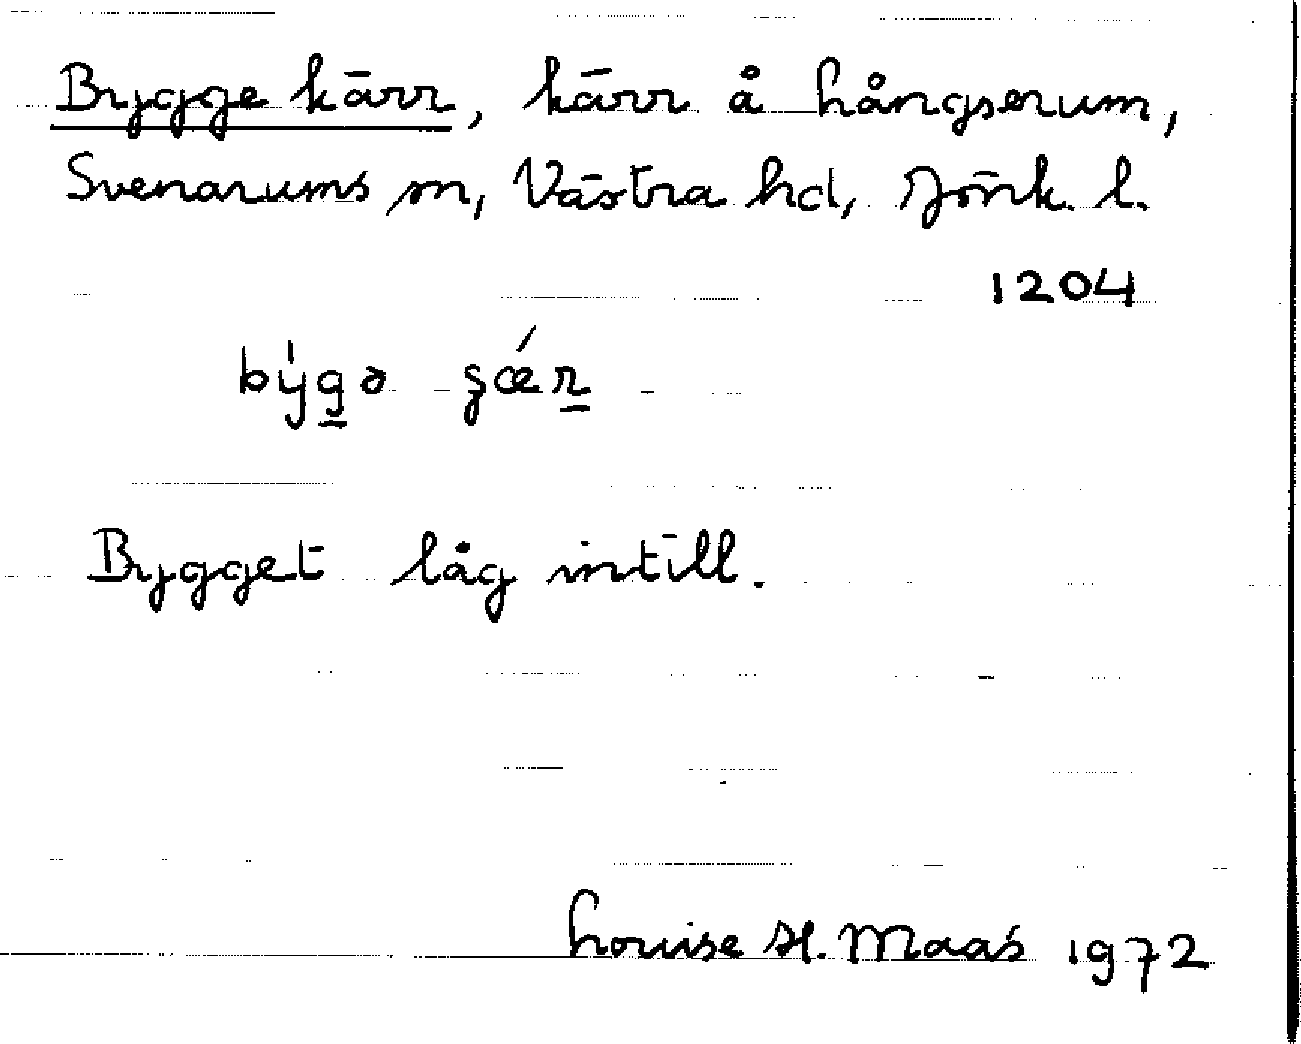 Bygge kärr, kärr å Långserum,
Svenarums sn, Västra hd, Jönk. l.
1204
by̍gə ʂǽr
Bygget låg intill.
Louise H. Maas 1972